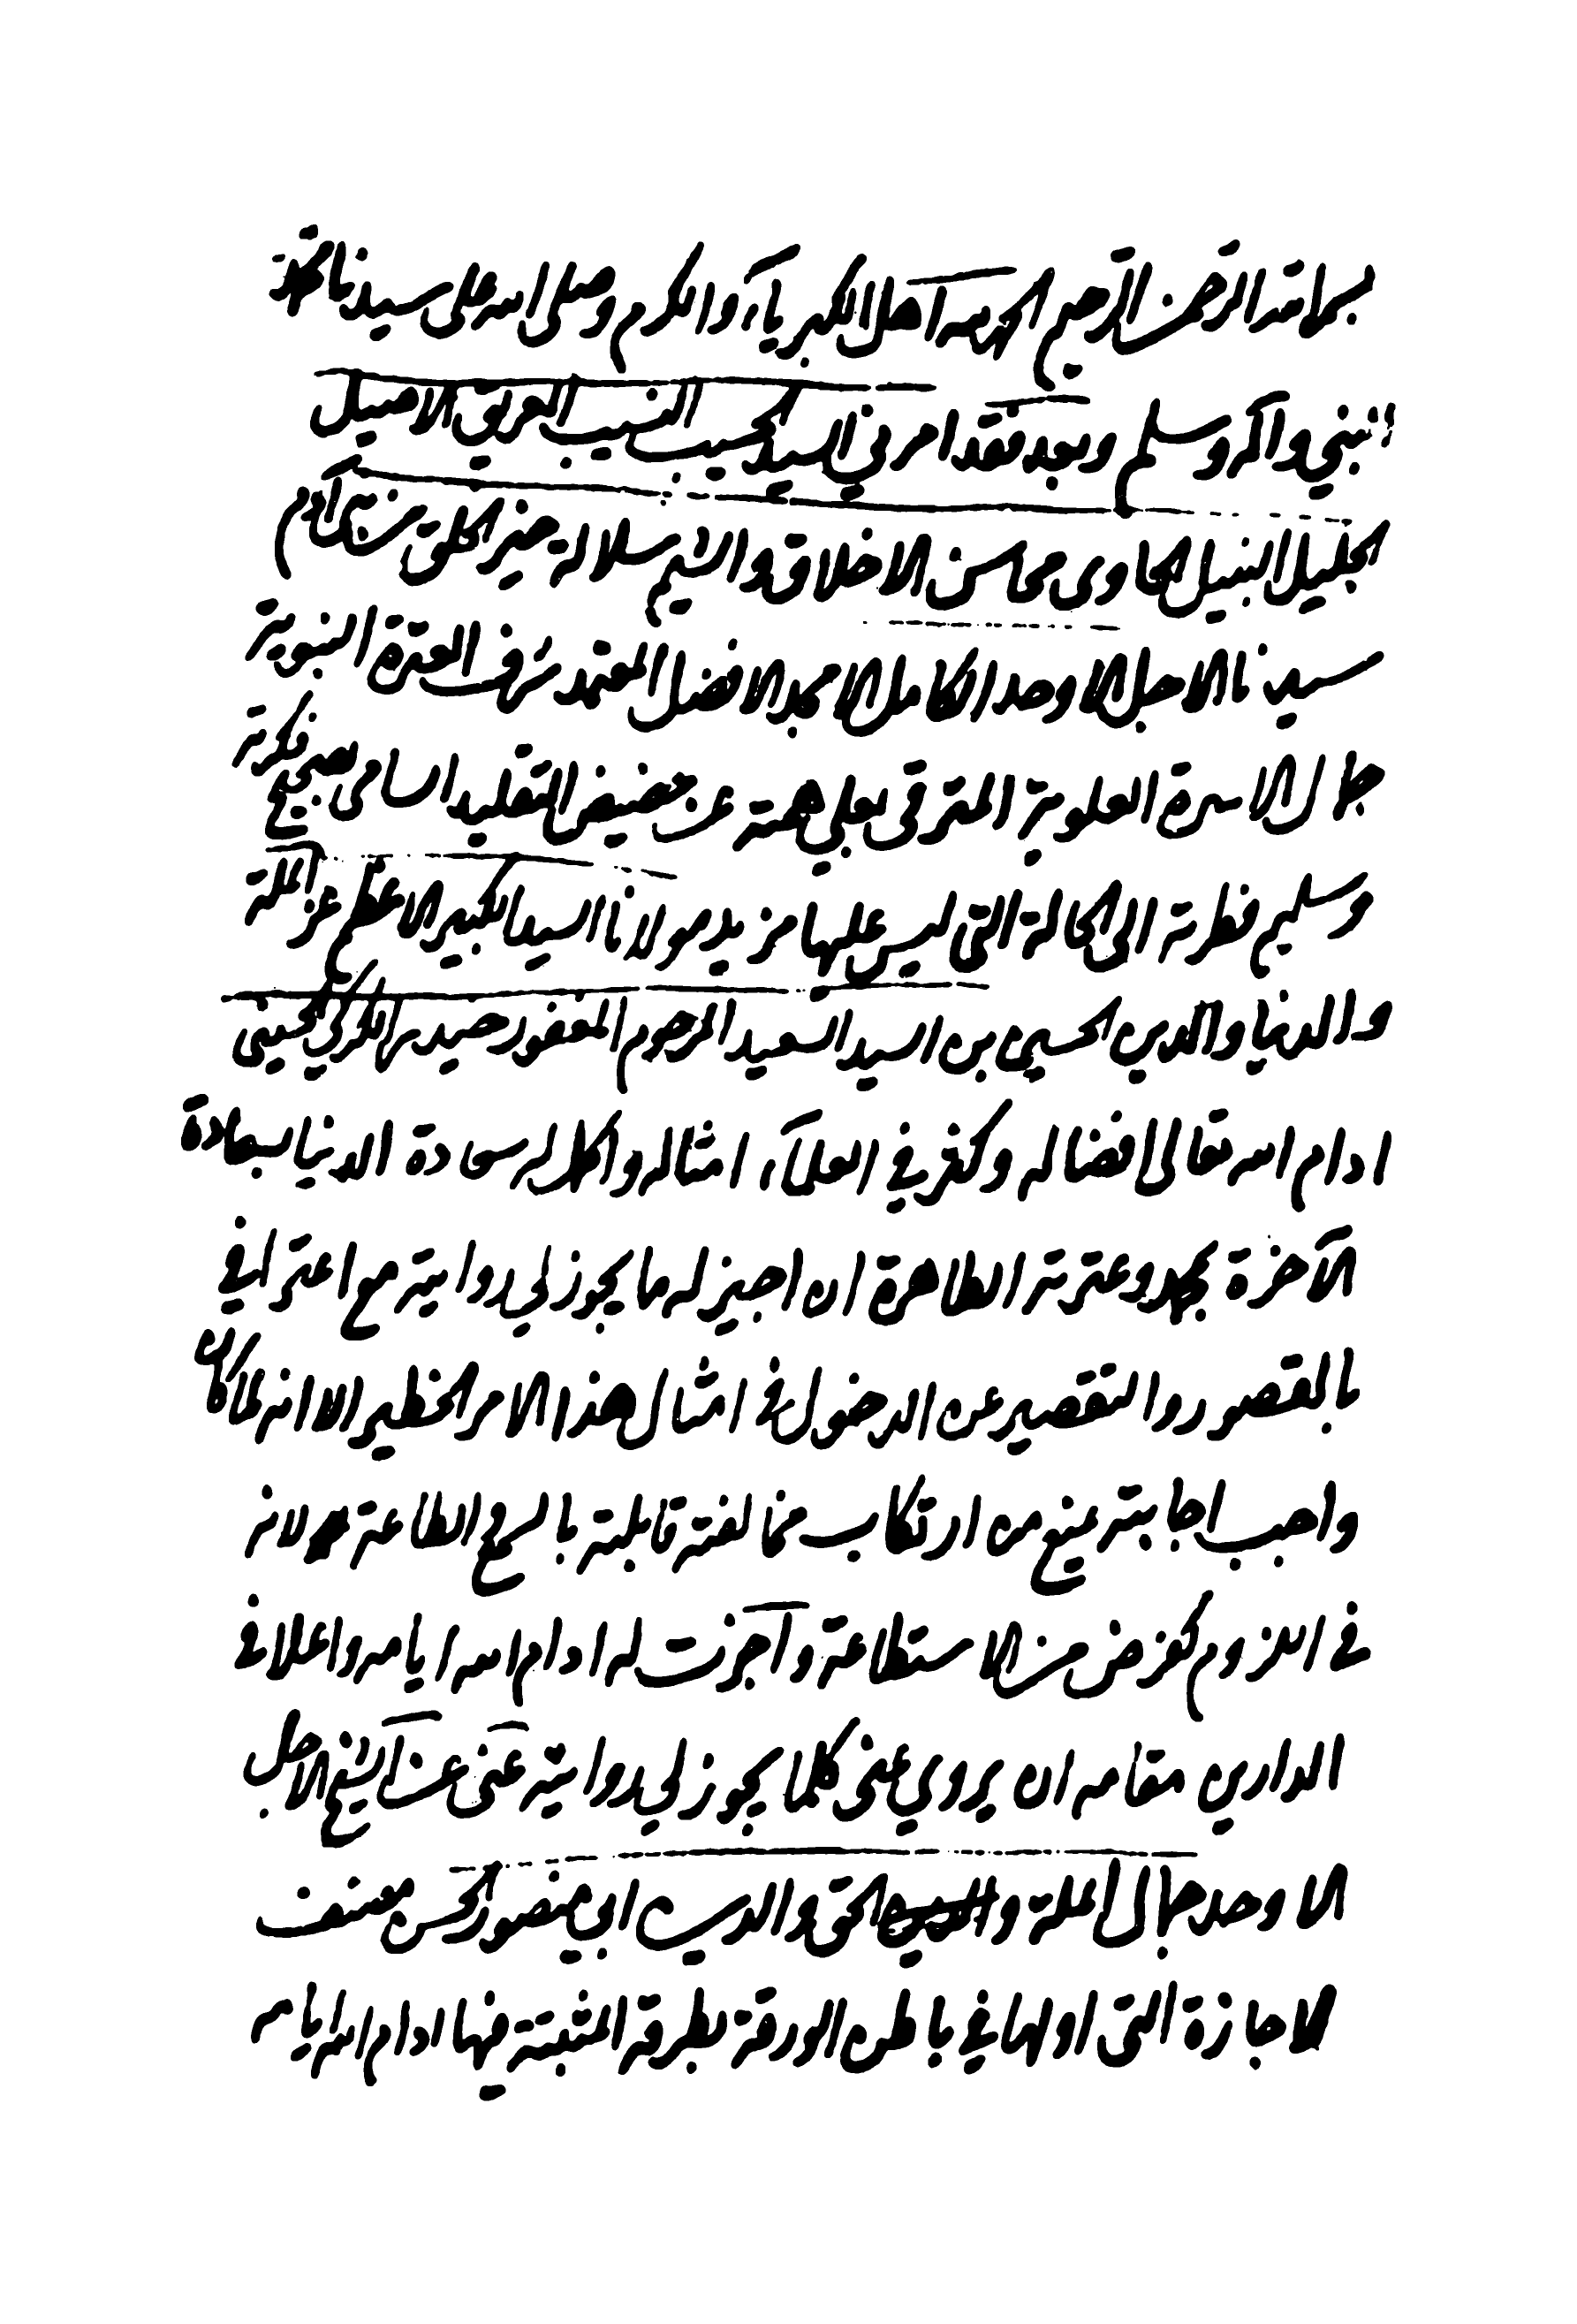 بسم الله الرحمن الرحيم الحمد لله اهل الكبرياء والكرم وصلى الله على سيدنا محمد
النبي وآله وسلم وبعد فقد امرني السيد الحسيب النسيب العريق الاصيل
الجليل النبيل الحاوى محاسن الاخلاق والشيم سلالة خير الخلق من بني آدم
سيدنا الاجل الاوحد الكامل الامجد الافضل المعتمد شرف العترة النبوية
جمال الاسرة العلوية المترقى بعلي همته عن حضيض التقليد السامى بصحيح فكرته
وسليم فطرته الى الحالة التى ليس عليها مزيد مولانا السيد الكبير الاعظم عز الملة
والدنيا والدين الحسين بن السيد السعيد المرحوم المغفور حيدر الكركي الحسيني
ادام الله تعالى افضاله وكثر في العلماء امثاله واكمل له سعادة الدنيا بسعادة
الآخرة بمحمد وعترته الطاهرة ان اجيز له ما يجوز لي روايته مع اعترافي
بالقصور والتقصير عن الدخول في امثال هذا الامر الخطير الا انه لما كانت
واجب اجابته يمنع من ارتكاب مخالفته قابلته بالسمع والطاعة لامره
في اللزوم كفرض من الاستطاعة وآجزت له ادام الله ايامه واعلا في
الدارين مقامه ان يروي عني كلما يجوز لي روايته عني عن الشيخ الاجل
الاوحد جمال الملة والحق والدين ابي منصور الحسن مصنف
الاجازة التى اولها في باطن الورقة بطرقه المثبتة فيها ادام الله ايامه